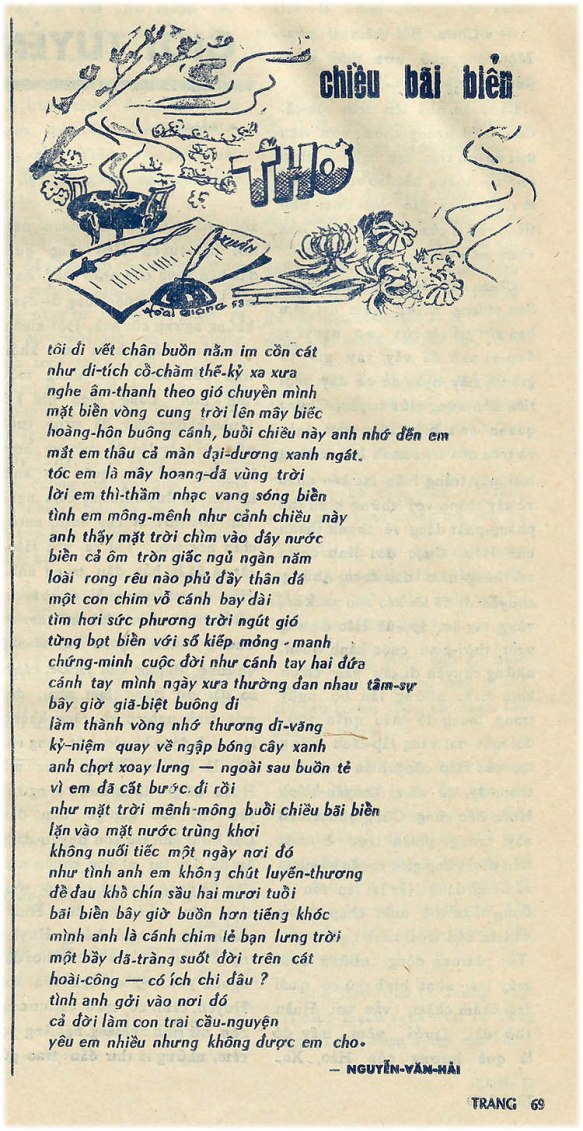 chiều bãi biển
THƠ
XUÂN
Hoài Giang 59
tôi đi vết chân buồn nằm im cồn cát
như di-tích cổ-chàm thế-kỷ xa xưa
nghe âm-thanh theo gió chuyền mình
mặt biển vòng cung trời lên mây biếc
hoàng-hôn buông cánh, buổi chiều này anh nhớ đến em
mắt em thâu cả màn đại-dương xanh ngát.
tóc em là mây hoang-dã vùng trời
lời em thì-thầm nhạc vang sóng biển
tình em mông-mênh như cảnh chiều này
anh thấy mặt trời chìm vào đáy nước
biển cả ôm tròn giấc ngủ ngàn năm
loài rong rêu nào phủ đầy thân đá
một con chim vỗ cánh bay dài
tìm hơi sức phương trời ngút gió
từng bọt biển với số kiếp mỏng-manh
chứng-minh cuộc đời như cánh tay hai đứa
cánh tay mình ngày xưa thường đan nhau tâm-sự
bây giờ giã-biệt buông đi
làm thành vòng nhớ thương dĩ-vãng
kỷ-niệm quay về ngập bóng cây xanh
anh chợt xoay lưng — ngoài sau buồn tẻ
vì em đã cất bước đi rồi
như mặt trời mênh-mông buổi chiều bãi biển
lặn vào mặt nước trùng khơi
không nuối tiếc một ngày nơi đó
như tình anh em không chút luyến-thương
để đau khổ chín sầu hai mươi tuổi
bãi biển bây giờ buồn hơn tiếng khóc
mình anh là cánh chim lẻ bạn lưng trời
một bầy dã-tràng suốt đời trên cát
hoài-công — có ích chi đâu ?
tình anh gởi vào nơi đó
cả đời làm con trai cầu-nguyện
yêu em nhiều nhưng không được em cho.
— NGUYỄN-VĂN-HẢI
TRANG 69